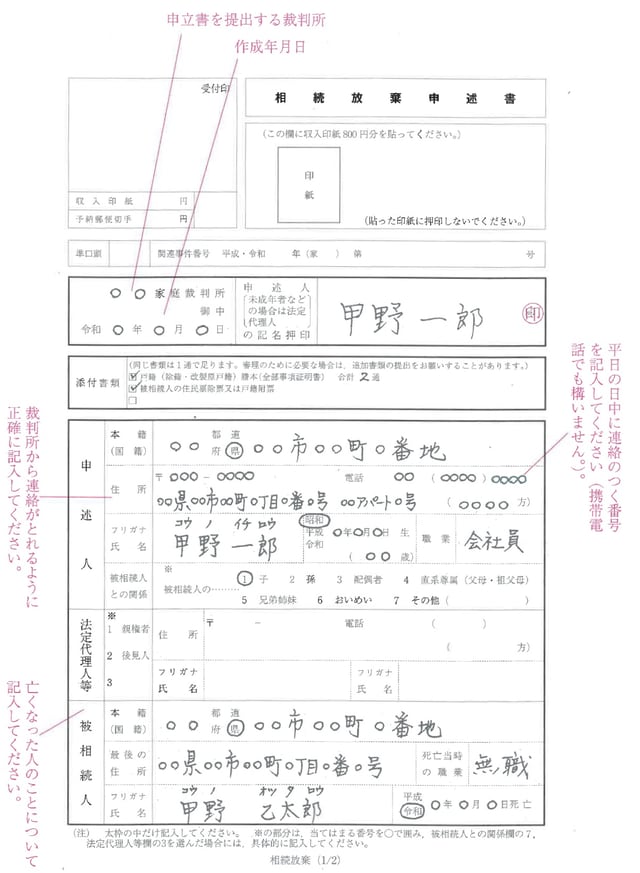 申立書を提出する裁判所
作成年月日
受付印
相続放棄申述書
(この欄に収入印紙800円分を貼ってください。)
印
紙
(貼った印紙に押印しないでください。)
収入印紙 円
予納郵便切手 円
準口頭 関連事件番号 平成・令和 年(家 )第 号
○○家庭裁判所
御中
令和○年○月○日
申述人
未成年者など
の場合は法定
代理人
の記名押印
甲野 一郎 印
添付書類
(同じ書類は1通で足ります。審理のために必要な場合は、追加書類の提出をお願いすることがあります。)
☑戸籍(除籍・改製原戸籍)謄本(全部事項証明書) 合計 2通
☑被相続人の住民票除票又は戸籍附票
□
平日の日中に連絡のつく番号
を記入してください(携帯電
話でも構いません。)。
裁判所から連絡がとれるように
正確に記入してください。
申述人
本籍
(国籍)
○○ 都道府県 ○○市○○町○番地
住所
〒○○○-○○○○ 電話 ○○(○○○○)○○○○
○○県○○市○○町○丁目○番○号 ○○アパート○号 (○○○○方)
フリガナ コウノ イチロウ
氏名 甲野 一郎
昭和
平成
令和
○年○月○日生
(○○歳)
職業 会社員
被相続人
との関係
※
被相続人の……
1 子 2 孫 3 配偶者 4 直系尊属(父母・祖父母)
5 兄弟姉妹 6 おいめい 7 その他( )
法定代理人等
※
1 親権者
2 後見人
3
住所
〒 - 電話 ( )
( 方)
フリガナ
氏名
フリガナ
氏名
亡くなった人のことについて
記入してください。
被相続人
本籍
(国籍)
○○ 都道府県 ○○市○○町○番地
最後の
住所
○○県○○市○○町○丁目○番○号
死亡当時
の職業
無職
フリガナ コウノ オツタロウ
氏名 甲野 乙太郎
平成
令和
○年○月○日死亡
(注) 太枠の中だけ記入してください。 ※の部分は、当てはまる番号を○で囲み、被相続人との関係欄の7、
法定代理人等欄の3を選んだ場合には、具体的に記入してください。
相続放棄(1/2)